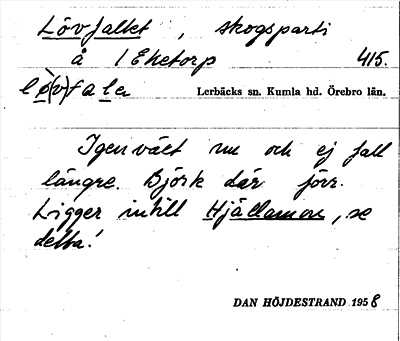 Lövfallet, skogsparti
å 1 Eketorp 415.
lö(v)fala
Lerbäcks sn. Kumla hd. Örebro län.
Igenväxt nu och ej fall
längre. Björk där förr.
Ligger intill Hjällamon, se
detta!
DAN HÖJDESTRAND 1958